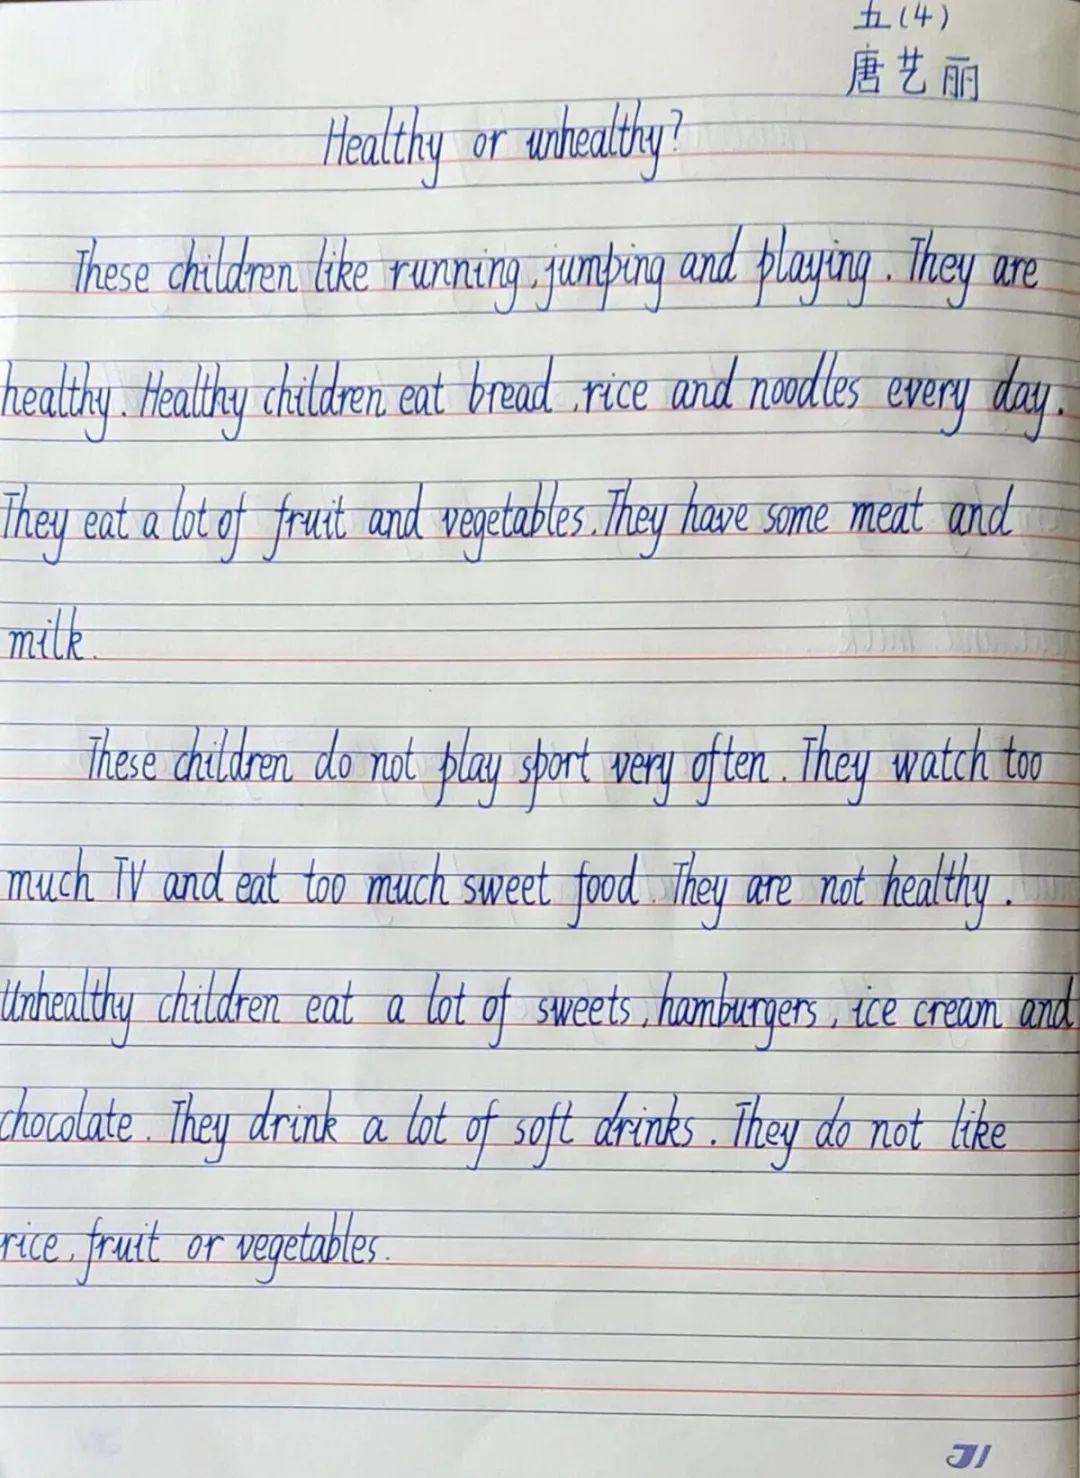 五(4)
唐艺丽
Healthy or unhealthy?
These children like running, jumping and playing. They are
healthy. Healthy children eat bread, rice and noodles every day.
They eat a lot of fruit and vegetables. They have some meat and
milk.
These children do not play sport very often. They watch too
much TV and eat too much sweet food. They are not healthy.
Unhealthy children eat a lot of sweets, hamburgers, ice cream and
chocolate. They drink a lot of soft drinks. They do not like
rice, fruit or vegetables.